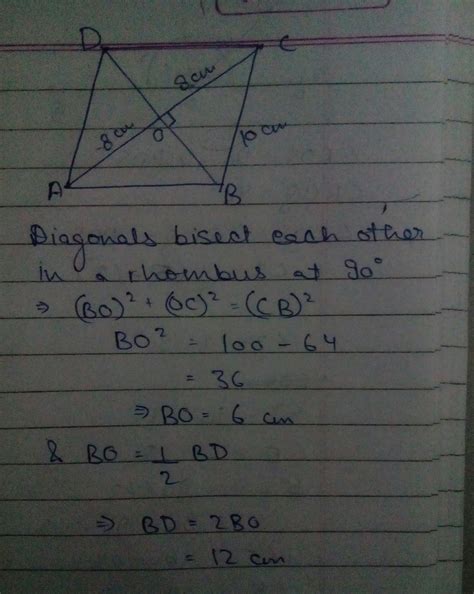 D
C
8 cm
8 cm
O
10 cm
A
B
Diagonals bisect each other
in a rhombus at 90°
⇒ (BO)² + (OC)² = (CB)²
BO² = 100 - 64
= 36
⇒ BO = 6 cm
& BO = 1/2 BD
⇒ BD = 2BO
= 12 cm